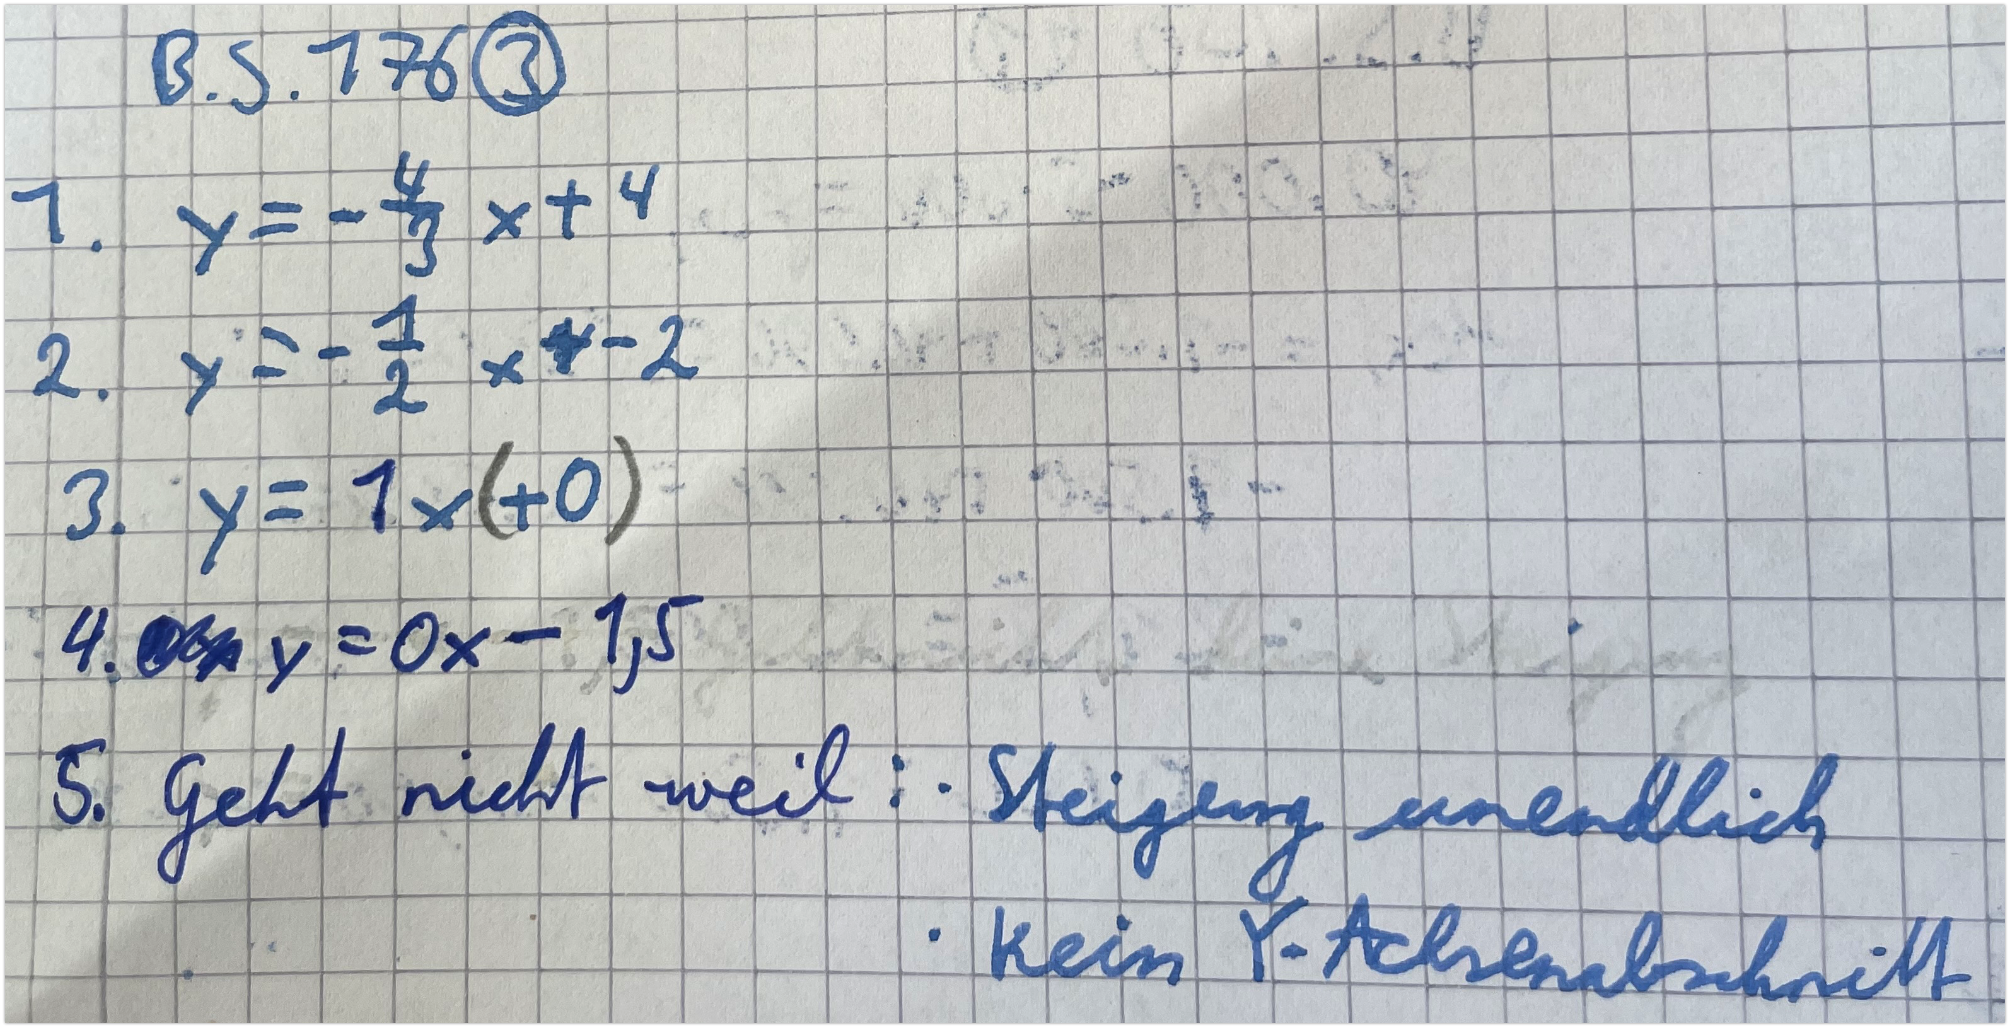 B.S. 176 ③
1. y = - 4/3 x + 4
2. y = - 1/2 x - 2
3. y = 1x (+0)
4. y = 0x - 1,5
5. Geht nicht weil : · Steigung unendlich
· Kein Y-Achsenabschnitt